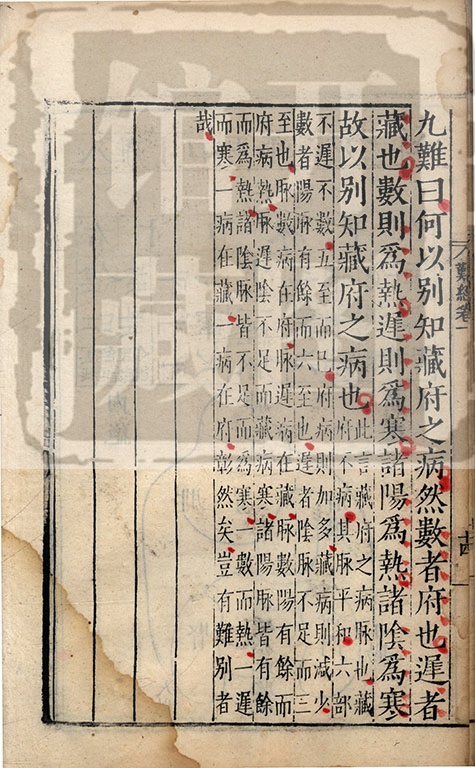 難經卷一
九難曰何以別知藏府之病然數者府也遲者
藏也數則爲熱遲則爲寒諸陽爲熱諸陰爲寒
故以別知藏府之病也
此言藏府之病脉也藏
府不病其脉平和六部
不遲不數五至而已府病則加多藏病則減少
數者陽脉有餘而六至也遲者陰脉不足而三
至也脉數病在府脉遲病在藏脉數陽有餘而
府病熱脉遲陰不足而藏病寒諸陽脉皆有餘
而爲熱諸陰脉皆不足而爲寒一數而熱一遲
而寒一病在藏一病在府彰然矣豈有難別者
哉